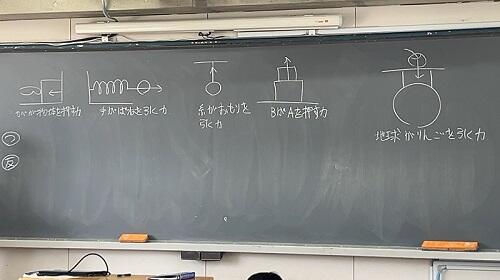 手が物体を押す力
手がばねを引く力
糸がおもりを
引く力
BがAを押す力
地球がりんごを引く力
反